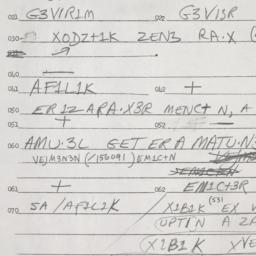 021 G3VIR1M 022 G3V13R
030 XODZ+1K ZEN3 RA.X (
040
041 AF1L1K 042 +
050 ER1Z ARA.X3R MENC+ N, A
051 + 052
060 AMU.3L GET ERA MATU.N
VEJM3N3N (/156091) EM1C+N
061 + 062 EM1C+3R
070 SA/AF1L1K X1B1K (531 EX V
(UPT1N A ZA
(X1B1K XVE